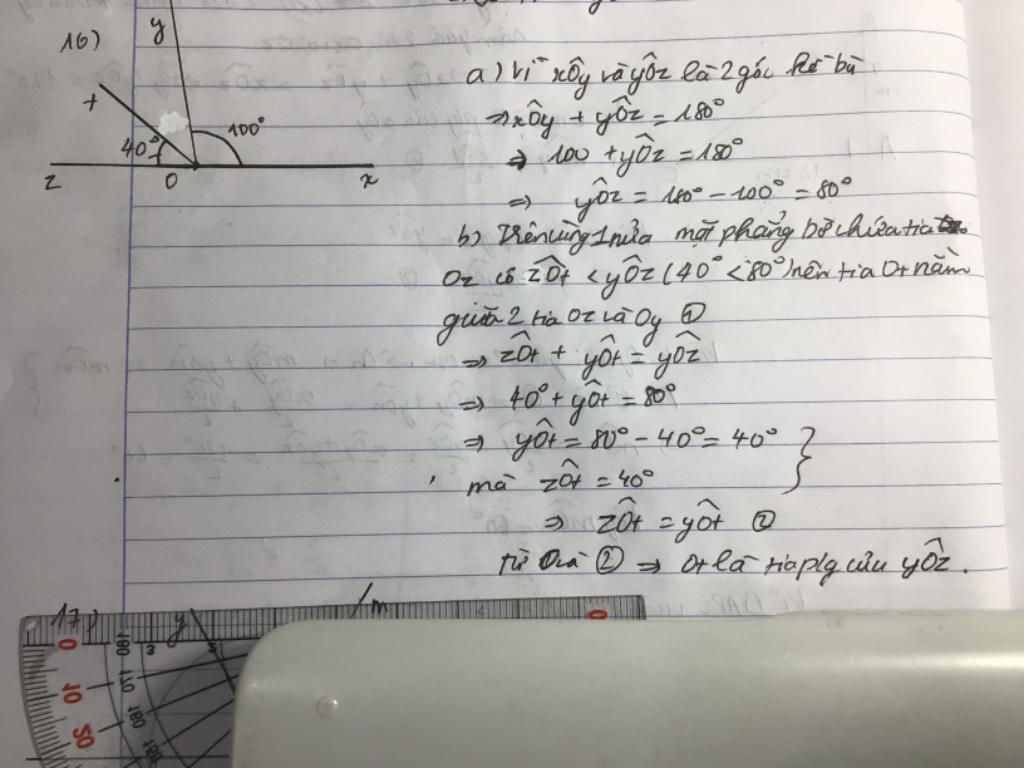 16)
y
t
40°
100°
z
O
x
a) Vì xÔy và yÔz là 2 góc kề bù
⇒ xÔy + yÔz = 180°
⇒ 100 + yÔz = 180°
⇒ yÔz = 180° - 100° = 80°
b) Trên cùng 1 nửa mặt phẳng bờ chứa tia
Oz có zÔt < yÔz (40° < 80°) nên tia Ot nằm
giữa 2 tia Oz và Oy ①
⇒ zÔt + yÔt = yÔz
⇒ 40° + yÔt = 80°
⇒ yÔt = 80° - 40° = 40°
mà zÔt = 40°
⇒ zÔt = yÔt ②
từ ① và ② ⇒ Ot là tia p/g của yÔz.
17)
y
m
0
0
10
20
180
170